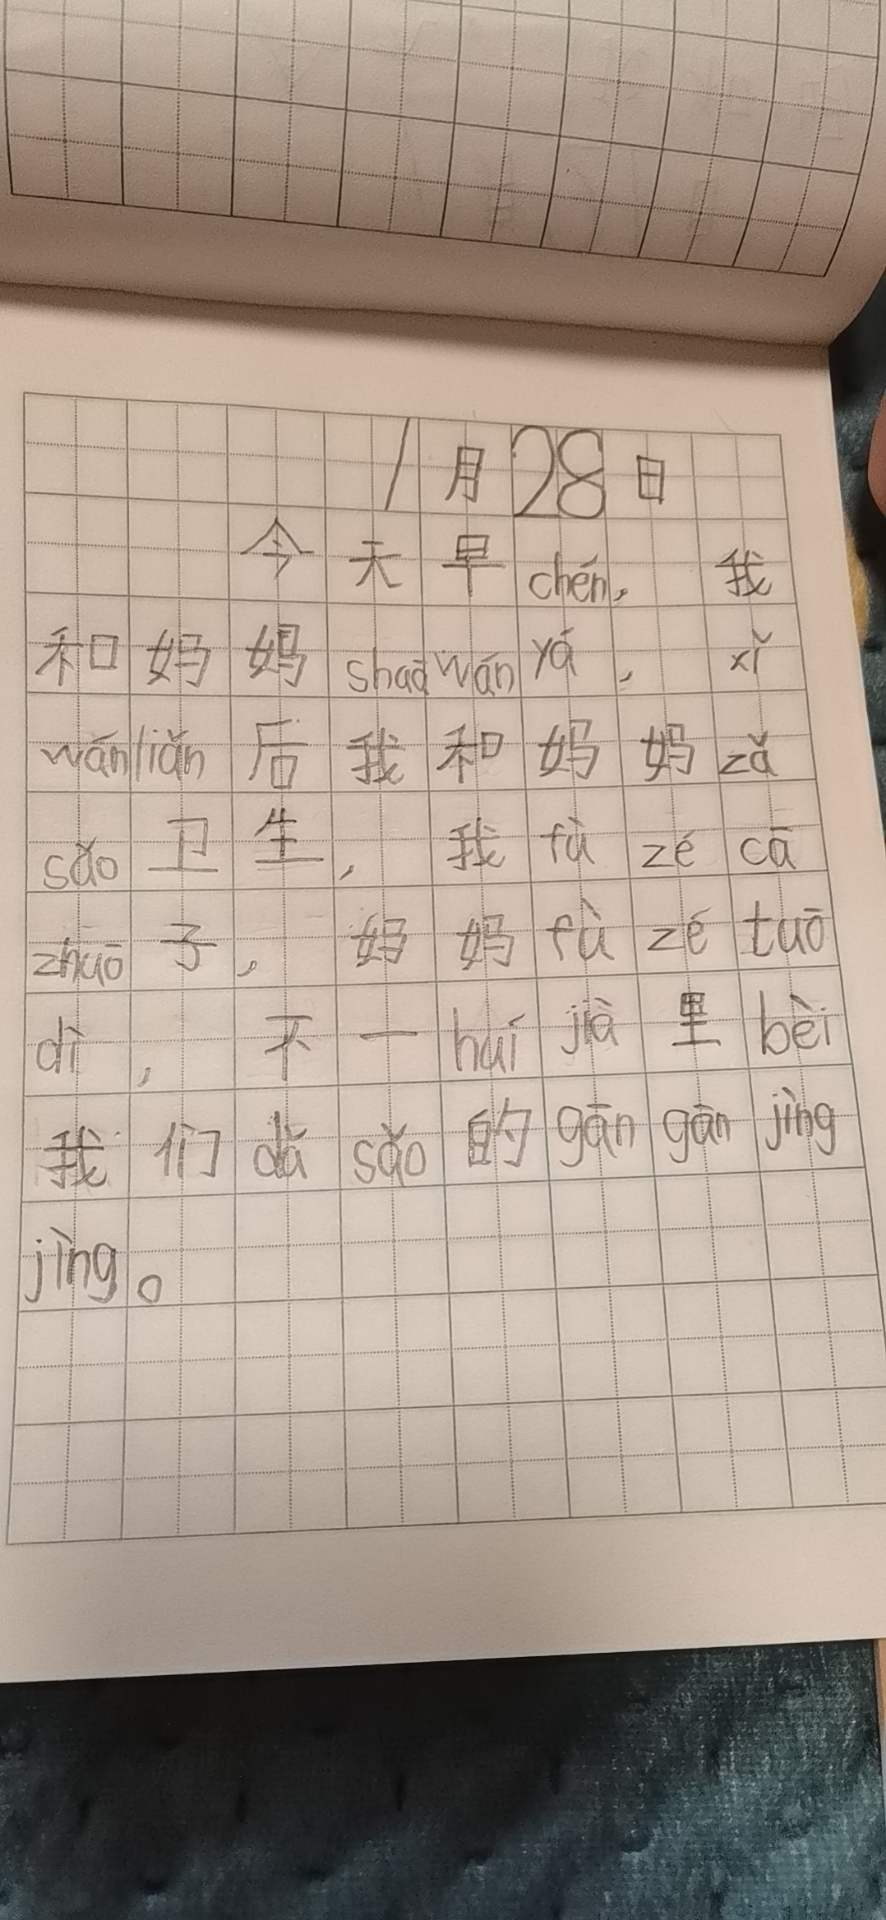 1月28日
今天早chén，我
和妈妈shuāwányá，xǐ
wánliǎn后我和妈妈zǎ
sǎo卫生，我fù zé cā
zhuō子，妈妈fù zé tuō
dì，不一huí jià里bèi
我们dǎ sǎo的gān gān jìng
jìng。